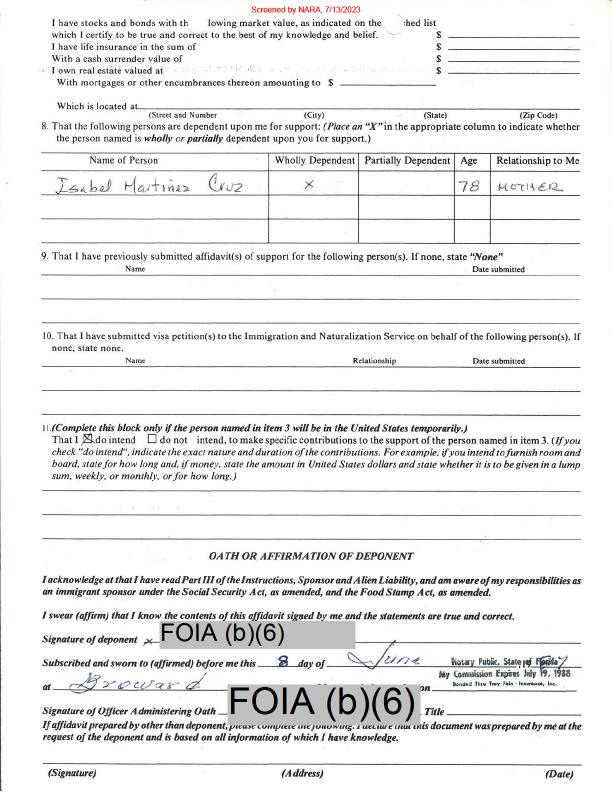 Screened by NARA, 7/13/2023
I have stocks and bonds with th lowing market value, as indicated on the ched list
which I certify to be true and correct to the best of my knowledge and belief. $
I have life insurance in the sum of $
With a cash surrender value of $
I own real estate valued at $
With mortgages or other encumbrances thereon amounting to $
Which is located at
(Street and Number) (City) (State) (Zip Code)
8. That the following persons are dependent upon me for support: (Place an "X" in the appropriate column to indicate whether
the person named is wholly or partially dependent upon you for support.)
Name of Person Wholly Dependent Partially Dependent Age Relationship to Me
Isabel Martinez Cruz X 78 MOTHER
9. That I have previously submitted affidavit(s) of support for the following person(s). If none, state "None"
Name Date submitted
10. That I have submitted visa petition(s) to the Immigration and Naturalization Service on behalf of the following person(s). If
none, state none.
Name Relationship Date submitted
11.(Complete this block only if the person named in item 3 will be in the United States temporarily.)
That I ☒ do intend ☐ do not intend, to make specific contributions to the support of the person named in item 3. (If you
check "do intend", indicate the exact nature and duration of the contributions. For example, if you intend to furnish room and
board, state for how long and, if money, state the amount in United States dollars and state whether it is to be given in a lump
sum, weekly, or monthly, or for how long.)
OATH OR AFFIRMATION OF DEPONENT
I acknowledge at that I have read Part III of the Instructions, Sponsor and Alien Liability, and am aware of my responsibilities as
an immigrant sponsor under the Social Security Act, as amended, and the Food Stamp Act, as amended.
I swear (affirm) that I know the contents of this affidavit signed by me and the statements are true and correct.
Signature of deponent x FOIA (b)(6)
Subscribed and sworn to (affirmed) before me this 8 day of June Notary Public, State of Florida
My Commission Expires July 19, 1988
at Broward on Bonded Thru Troy Fain - Insurance, Inc.
Signature of Officer Administering Oath FOIA (b)(6) Title
If affidavit prepared by other than deponent, please complete the following: I declare that this document was prepared by me at the
request of the deponent and is based on all information of which I have knowledge.
(Signature) (Address) (Date)